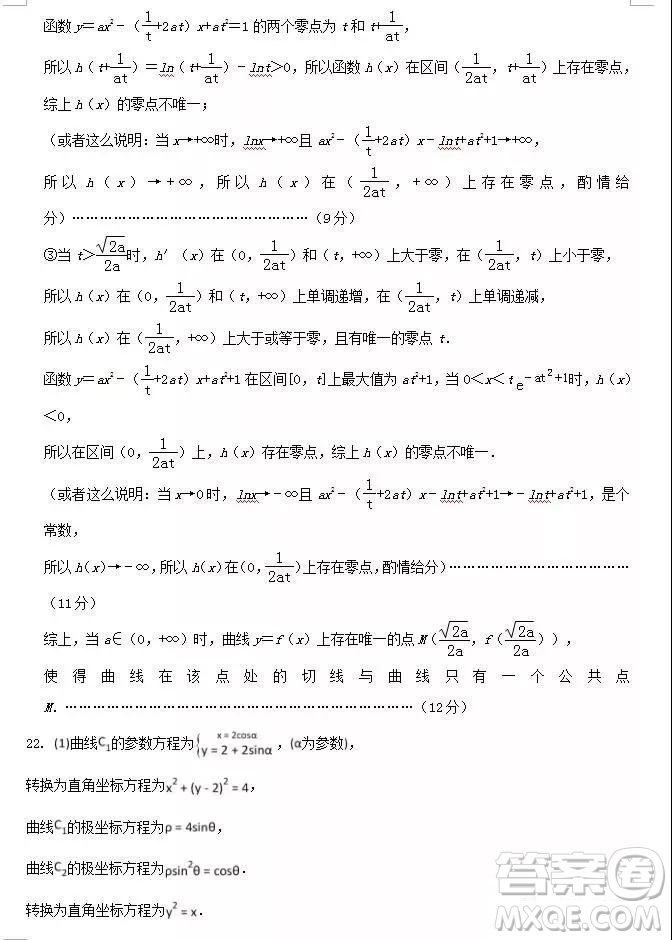 函数 y＝ax²－（1/t+2at）x+at²＝1 的两个零点为 t 和 t+1/at，
所以 h（t+1/at）＝ln（t+1/at）－lnt＞0，所以函数 h（x）在区间（1/2at，t+1/at）上存在零点，
综上 h（x）的零点不唯一；
（或者这么说明：当 x→+∞时，lnx→+∞且 ax²－（1/t+2at）x－lnt+at²+1→+∞，
所以 h（x）→+∞，所以 h（x）在（1/2at，+∞）上存在零点，酌情给
分）……………………………………………（9 分）
③当 t＞√2a/2a时，h′（x）在（0，1/2at）和（t，+∞）上大于零，在（1/2at，t）上小于零，
所以 h（x）在（0，1/2at）和（t，+∞）上单调递增，在（1/2at，t）上单调递减，
所以 h（x）在（1/2at，+∞）上大于或等于零，且有唯一的零点 t．
函数 y＝ax²－（1/t+2at）x+at²+1 在区间[0，t]上最大值为 at²+1，当 0＜x＜te^－at²+1时，h（x）
＜0，
所以在区间（0，1/2at）上，h（x）存在零点，综上 h（x）的零点不唯一．
（或者这么说明：当 x→0 时，lnx→－∞且 ax²－（1/t+2at）x－lnt+at²+1→－lnt+at²+1，是个
常数，
所以 h（x）→－∞，所以 h（x）在（0，1/2at）上存在零点，酌情给分）…………………………………
（11 分）
综上，当 a∈（0，+∞）时，曲线 y＝f（x）上存在唯一的点 M（√2a/2a，f（√2a/2a）），
使得曲线在该点处的切线与曲线只有一个公共点
M．…………………………………………………………………（12 分）
22. (1)曲线C₁的参数方程为{x = 2cosα y = 2 + 2sinα，(α为参数)，
转换为直角坐标方程为x² + (y - 2)² = 4，
曲线C₁的极坐标方程为ρ = 4sinθ，
曲线C₂的极坐标方程为ρsin²θ = cosθ．
转换为直角坐标方程为y² = x．
答案圈
MXQE.COM